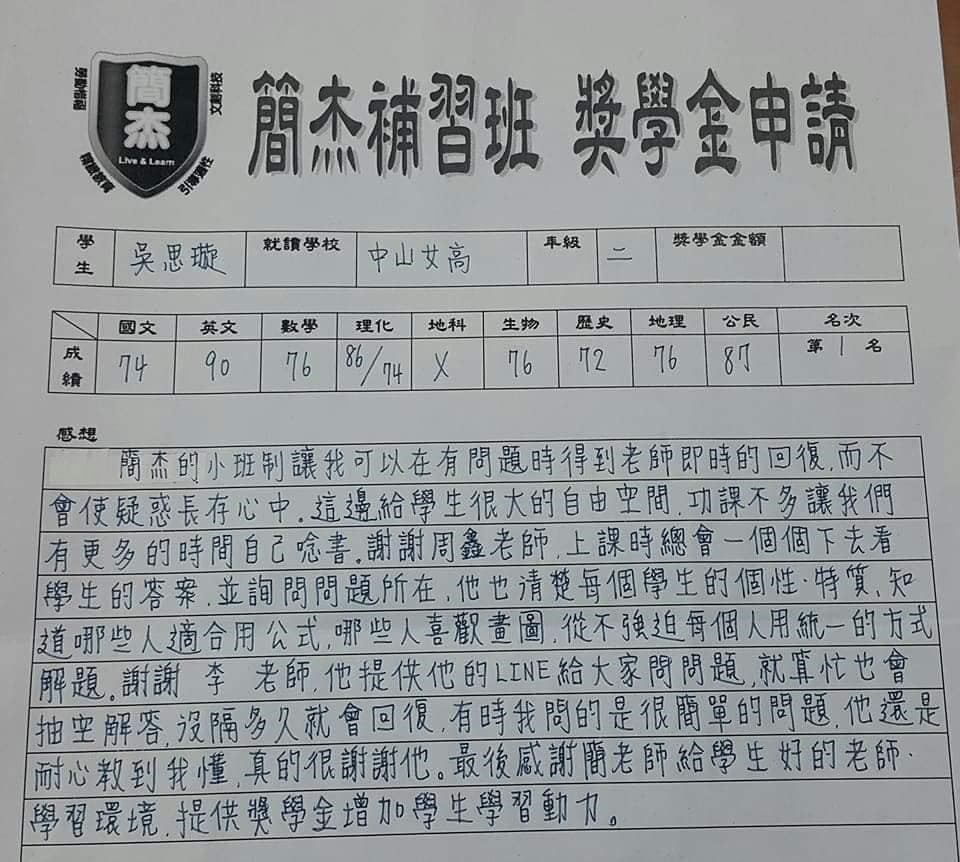 簡杰
Live & Learn
文創科技
引導適性
簡杰補習班 獎學金申請
學生 吳思璇 就讀學校 中山女高 年級 二 獎學金金額
國文 英文 數學 理化 地科 生物 歷史 地理 公民 名次
成績 74 90 76 86/74 X 76 72 76 87 第1名
感想
簡杰的小班制讓我可以在有問題時得到老師即時的回復,而不
會使疑惑長存心中。這邊給學生很大的自由空間,功課不多讓我們
有更多的時間自己唸書。謝謝周鑫老師,上課時總會一個個下去看
學生的答案,並詢問問題所在,他也清楚每個學生的個性·特質,知
道哪些人適合用公式,哪些人喜歡畫圖,從不強迫每個人用統一的方式
解題。謝謝 李 老師,他提供他的LINE給大家問問題,就算忙也會
抽空解答,沒隔多久就會回復,有時我問的是很簡單的問題,他還是
耐心教到我懂,真的很謝謝他。最後感謝簡老師給學生好的老師·
學習環境,提供獎學金增加學生學習動力。